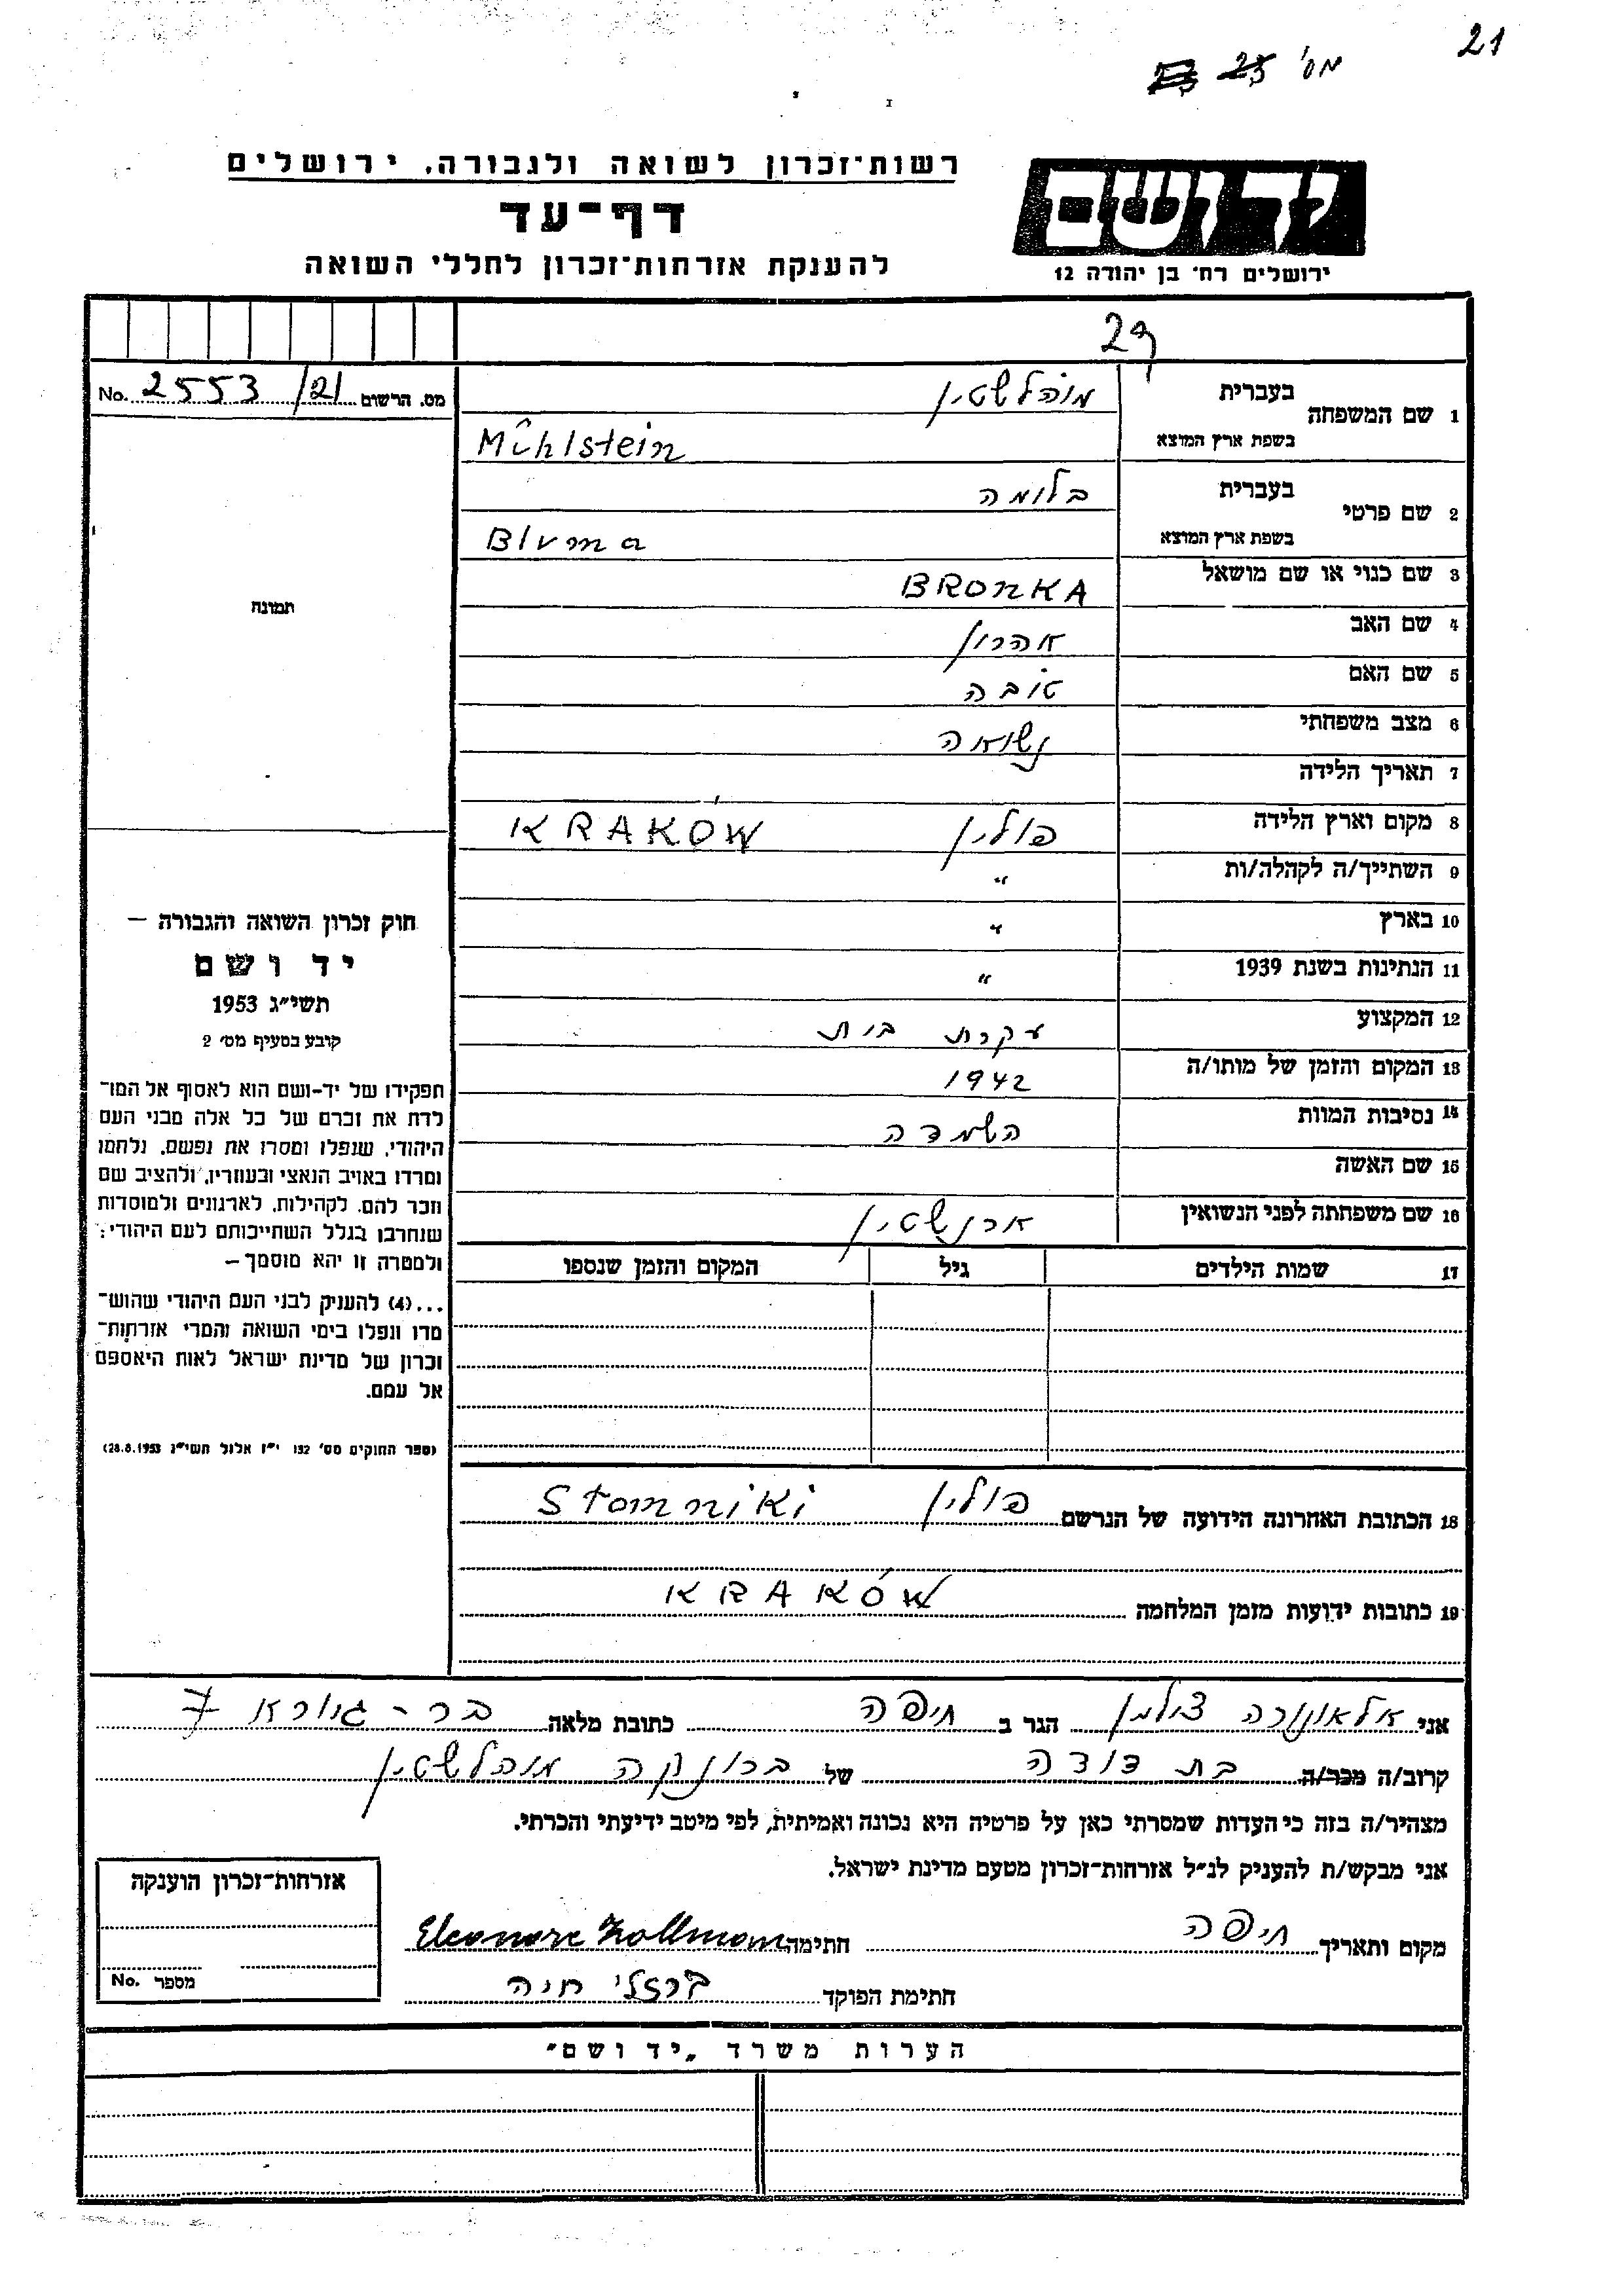 21
מס' 25
רשות־זכרון לשואה ולגבורה, ירושלים
דף־עד
להענקת אזרחות־זכרון לחללי השואה
יד ושם
ירושלים רח' בן יהודה 12
29
מס. הרשום 2553/21 No.
תמונה
חוק זכרון השואה והגבורה —
יד ושם
תשי״ג 1953
קובע בסעיף מס' 2
תפקידו של יד-ושם הוא לאסוף אל המו־
לדת את זכרם של כל אלה מבני העם
היהודי, שנפלו ומסרו את נפשם, נלחמו
ומרדו באויב הנאצי ובעוזריו, ולהציב שם
וזכר להם, לקהילות, לארגונים ולמוסדות
שנחרבו בגלל השתייכותם לעם היהודי;
ולמטרה זו יהא מוסמך —
...(4) להעניק לבני העם היהודי שהוש־
מדו ונפלו בימי השואה והמרי אזרחות־
זכרון של מדינת ישראל לאות היאספם
אל עמם.
(ספר החוקים מס' 132 י״ז אלול תשי״ג 28.8.1953)
1 שם המשפחה בעברית מוהלשטין
בשפת ארץ המוצא Mühlstein
2 שם פרטי בעברית בלומה
בשפת ארץ המוצא Bluma
3 שם כנוי או שם מושאל BRONKA
4 שם האב אהרון
5 שם האם טובה
6 מצב משפחתי נשואה
7 תאריך הלידה
8 מקום וארץ הלידה פולין KRAKÓW
9 השתייך/ה לקהלה/ות "
10 בארץ "
11 הנתינות בשנת 1939 "
12 המקצוע עקרת בית
13 המקום והזמן של מותו/ה 1942
14 נסיבות המוות השמדה
15 שם האשה
16 שם משפחתה לפני הנשואין ארנשטין
17 שמות הילדים גיל המקום והזמן שנספו
18 הכתובת האחרונה הידועה של הנרשם פולין Stomniki
19 כתובות ידועות מזמן המלחמה KRAKÓW
אני אלאונורה צולמן הגר ב חיפה כתובת מלאה בר-גיורא 7
קרוב/ה מכר/ה בת דודה של ברונקה מוהלשטין
מצהיר/ה בזה כי העדות שמסרתי כאן על פרטיה היא נכונה ואמיתית, לפי מיטב ידיעתי והכרתי.
אני מבקש/ת להעניק לנ״ל אזרחות-זכרון מטעם מדינת ישראל.
מקום ותאריך חיפה חתימה Eleonore Zollmann
חתימת הפוקד ברזלי חיה
אזרחות-זכרון הוענקה
מספר No.
הערות משרד „יד ושם״